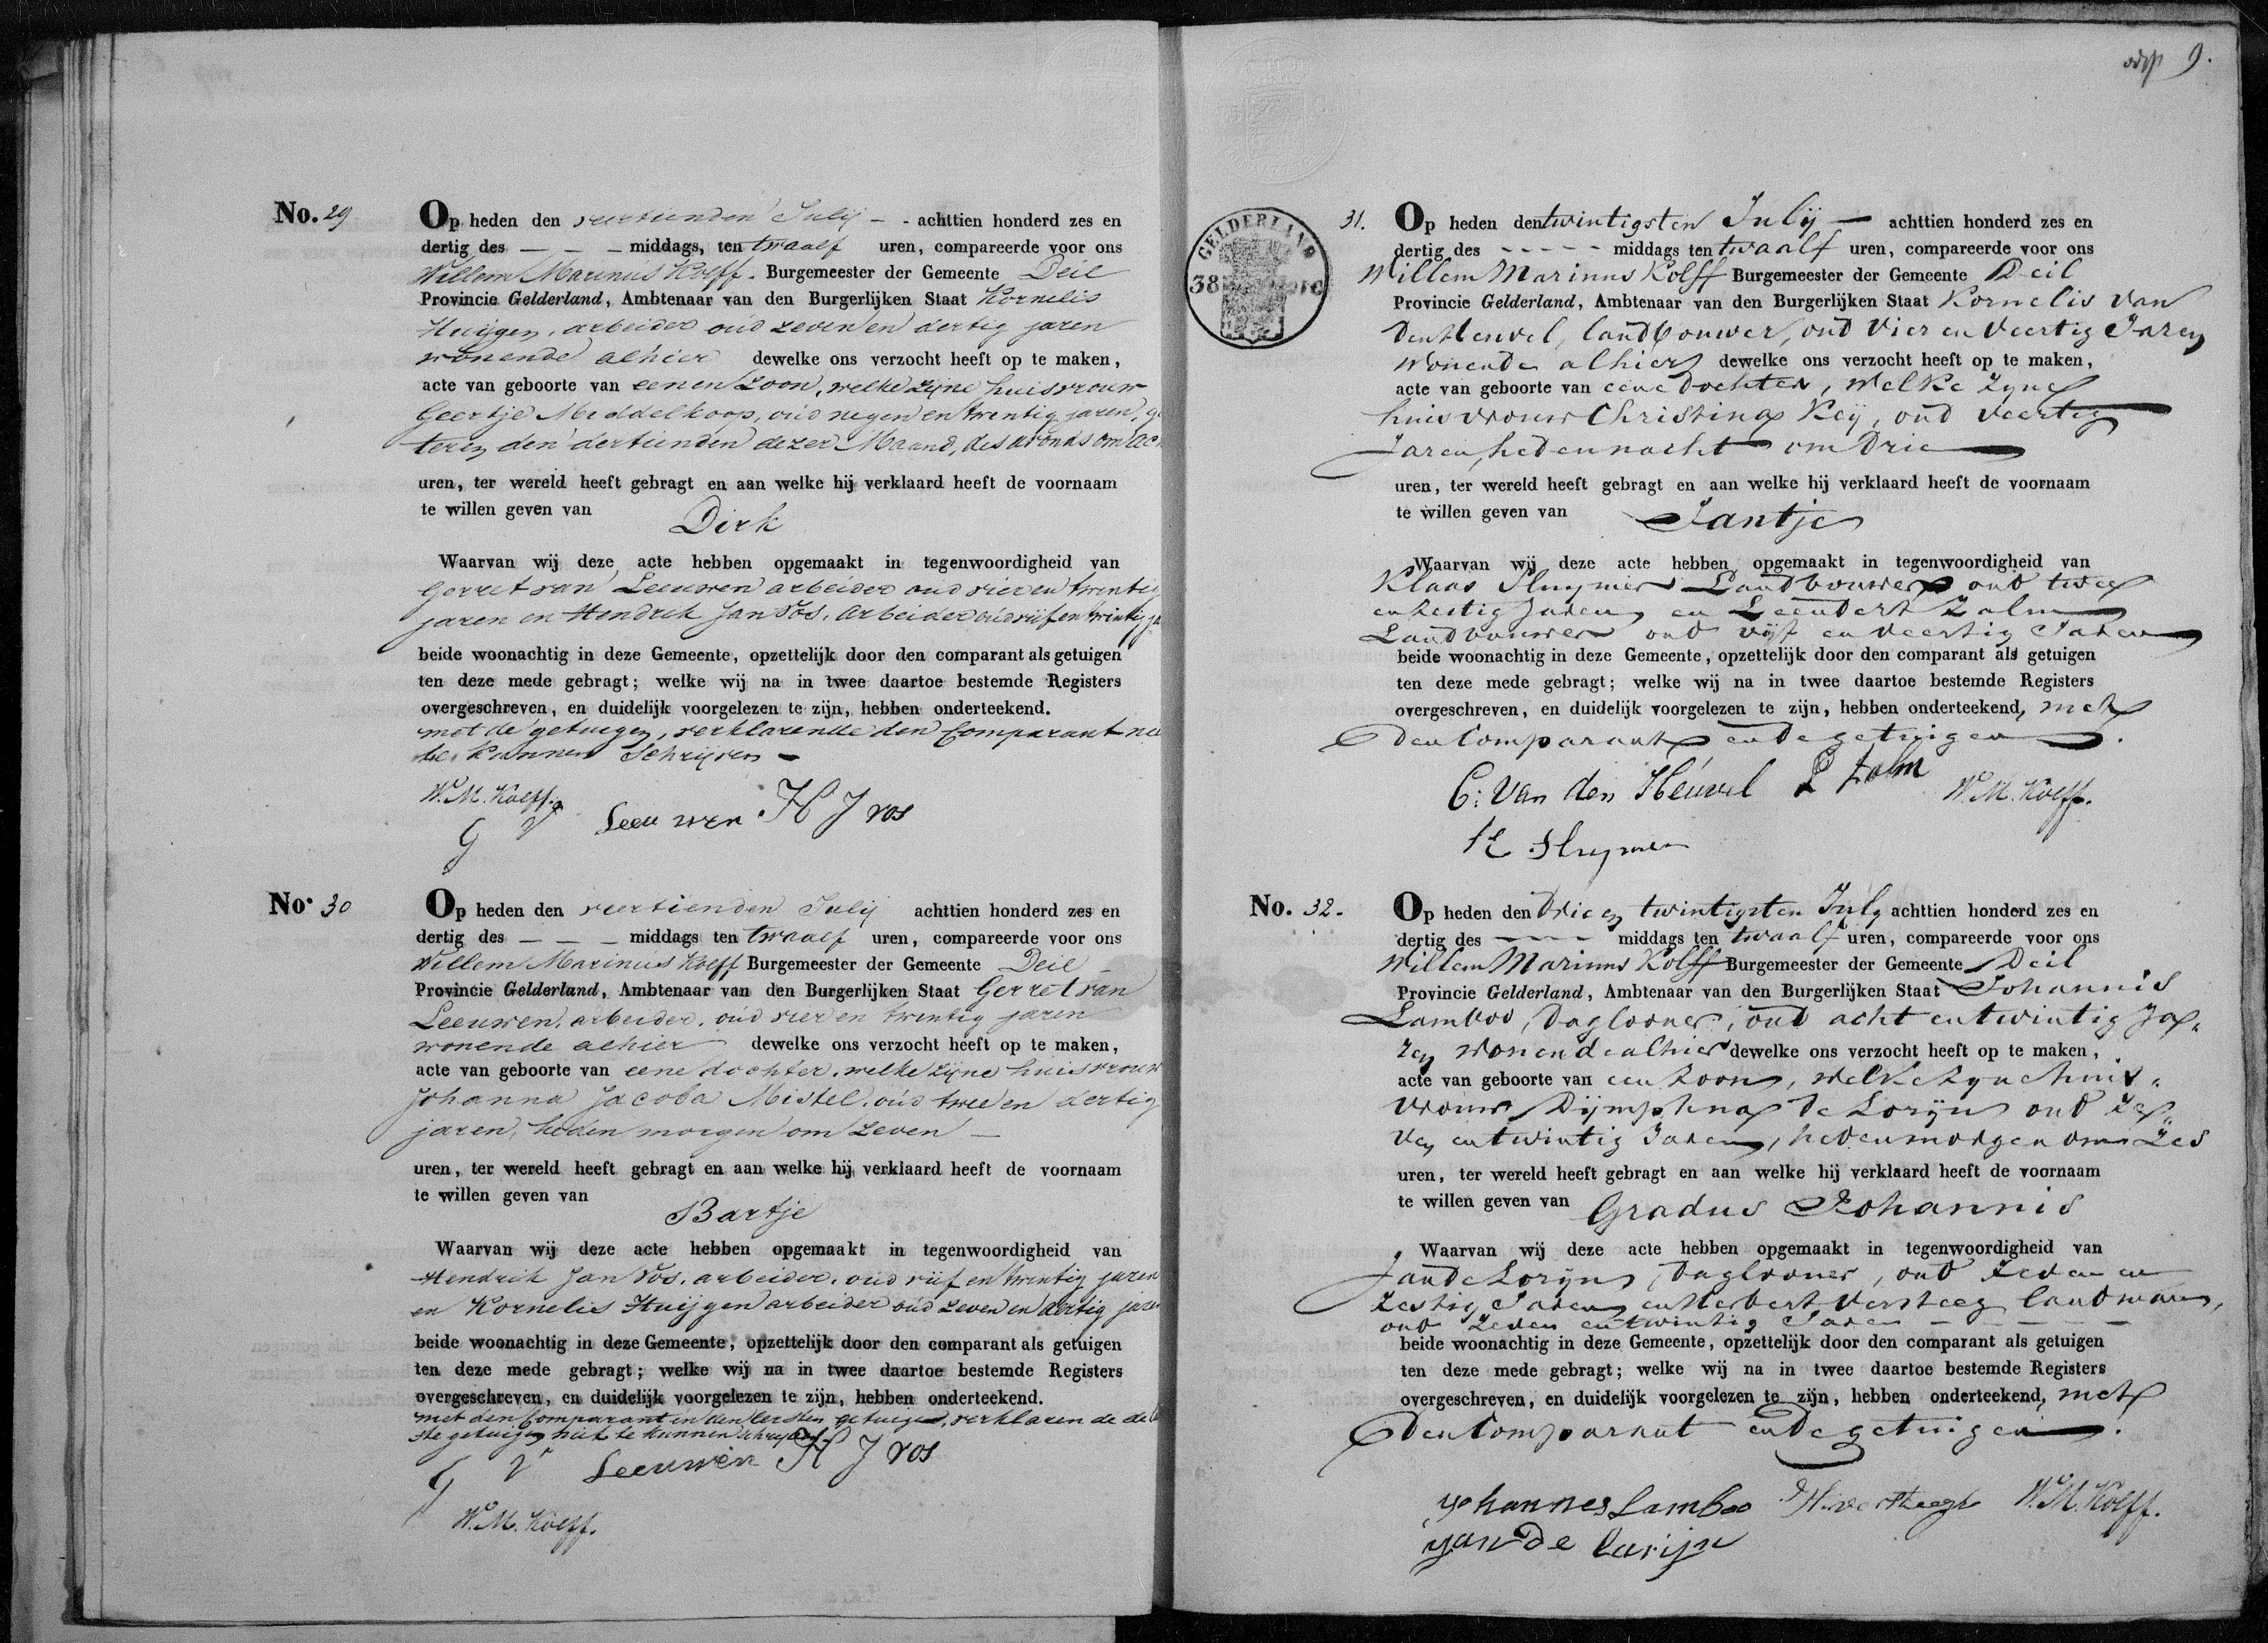 No. 29
Op heden den veertienden Julij - - achttien honderd zes en
dertig des — — — middags, ten twaalf uren, compareerde voor ons
Willem Marinus Kolff. Burgemeester der Gemeente Deil
Provincie Gelderland, Ambtenaar van den Burgerlijken Staat Kornelis
Huijgen, arbeider oud zeven en dertig jaren
wonende alhier dewelke ons verzocht heeft op te maken,
acte van geboorte van eenen Zoon, welke zijne huisvrouw
Geertje Middelkoop, oud negen en twintig jaren, g
teren den dertienden dezer Maand, des avonds om ac
uren, ter wereld heeft gebragt en aan welke hij verklaard heeft de voornaam
te willen geven van
Dirk
Waarvan wij deze acte hebben opgemaakt in tegenwoordigheid van
Gerret van Leeuwen arbeider oud vier en twintig
jaren en Hendrik Jan Vos, Arbeider oud vijf en twintig ja
beide woonachtig in deze Gemeente, opzettelijk door den comparant als getuigen
ten deze mede gebragt; welke wij na in twee daartoe bestemde Registers
overgeschreven, en duidelijk voorgelezen te zijn, hebben onderteekend.
met de getuigen, verklarende den Comparant nie
te kunnen Schrijven -
W. M. Kolff.
G V Leeuwen H J vos
No. 30
Op heden den veertienden Julij achttien honderd zes en
dertig des — — — middags ten twaalf uren, compareerde voor ons
Willem Marinus Kolff Burgemeester der Gemeente Deil
Provincie Gelderland, Ambtenaar van den Burgerlijken Staat Gerret van
Leeuwen, arbeider, oud vier en twintig jaren
wonende alhier dewelke ons verzocht heeft op te maken,
acte van geboorte van eene dochter, welke zijne huisvrouw
Johanna Jacoba Mistel, oud twee en dertig
jaren, heden morgen om zeven —
uren, ter wereld heeft gebragt en aan welke hij verklaard heeft de voornaam
te willen geven van
Bartje
Waarvan wij deze acte hebben opgemaakt in tegenwoordigheid van
Hendrik Jan Vos, arbeider, oud vijf en twintig jaren
en Kornelis Huijgen arbeider oud zeven en dertig jaren
beide woonachtig in deze Gemeente, opzettelijk door den comparant als getuigen
ten deze mede gebragt; welke wij na in twee daartoe bestemde Registers
overgeschreven, en duidelijk voorgelezen te zijn, hebben onderteekend.
met den Comparant en den eersten getuigen, verklaren de de
ste getuigen niet te kunnen schrijven.
G V Leeuwen H J vos
W. M. Kolff.
9.
GELDERLAND
38
31.
Op heden den twintigsten Julij — achttien honderd zes en
dertig des - - - - - middags ten twaalf uren, compareerde voor ons
Willem Marinus Kolff Burgemeester der Gemeente Deil
Provincie Gelderland, Ambtenaar van den Burgerlijken Staat Kornelis van
den Heuvel, landbouwer, oud vier en veertig Jaren
wonende alhier dewelke ons verzocht heeft op te maken,
acte van geboorte van eene dochter, welke zyne
huisvrouw Christina Keij, oud veertig
Jaren, heden nacht om Drie
uren, ter wereld heeft gebragt en aan welke hij verklaard heeft de voornaam
te willen geven van Jantje
Waarvan wij deze acte hebben opgemaakt in tegenwoordigheid van
Klaas Sluymer Landbouwer oud twee
en zestig Jaren en Leendert Zalm
Landbouwer oud vijf en veertig Jaren
beide woonachtig in deze Gemeente, opzettelijk door den comparant als getuigen
ten deze mede gebragt; welke wij na in twee daartoe bestemde Registers
overgeschreven, en duidelijk voorgelezen te zijn, hebben onderteekend, met
den Comparant en de getuigen.
C: van den Heuvel L Zalm W. M. Kolff.
K Sluymer
No. 32.
Op heden den Drie en twintigsten July achttien honderd zes en
dertig des - - - - middags ten twaalf uren, compareerde voor ons
Willem Marinus Kolff Burgemeester der Gemeente Deil
Provincie Gelderland, Ambtenaar van den Burgerlijken Staat Johannis
Lamboo, Daglooner, oud acht en twintig Ja-
ren wonende alhier dewelke ons verzocht heeft op te maken,
acte van geboorte van een zoon, welke zyne huis-
vrouw Dijmphna de Lorijn oud ze-
ven en twintig Jaren, heden morgen om Zes
uren, ter wereld heeft gebragt en aan welke hij verklaard heeft de voornaam
te willen geven van Gradus Johannis
Waarvan wij deze acte hebben opgemaakt in tegenwoordigheid van
Jan de Lorijn, Daglooner, oud zeven en
zestig Jaren en Herbert Versteeg landman,
oud zeven en twintig Jaren - - - - -
beide woonachtig in deze Gemeente, opzettelijk door den comparant als getuigen
ten deze mede gebragt; welke wij na in twee daartoe bestemde Registers
overgeschreven, en duidelijk voorgelezen te zijn, hebben onderteekend, met
den Comparant en de getuigen.
Johannes Lamboo H. versteegh W. M. Kolff.
jan de Lurijn